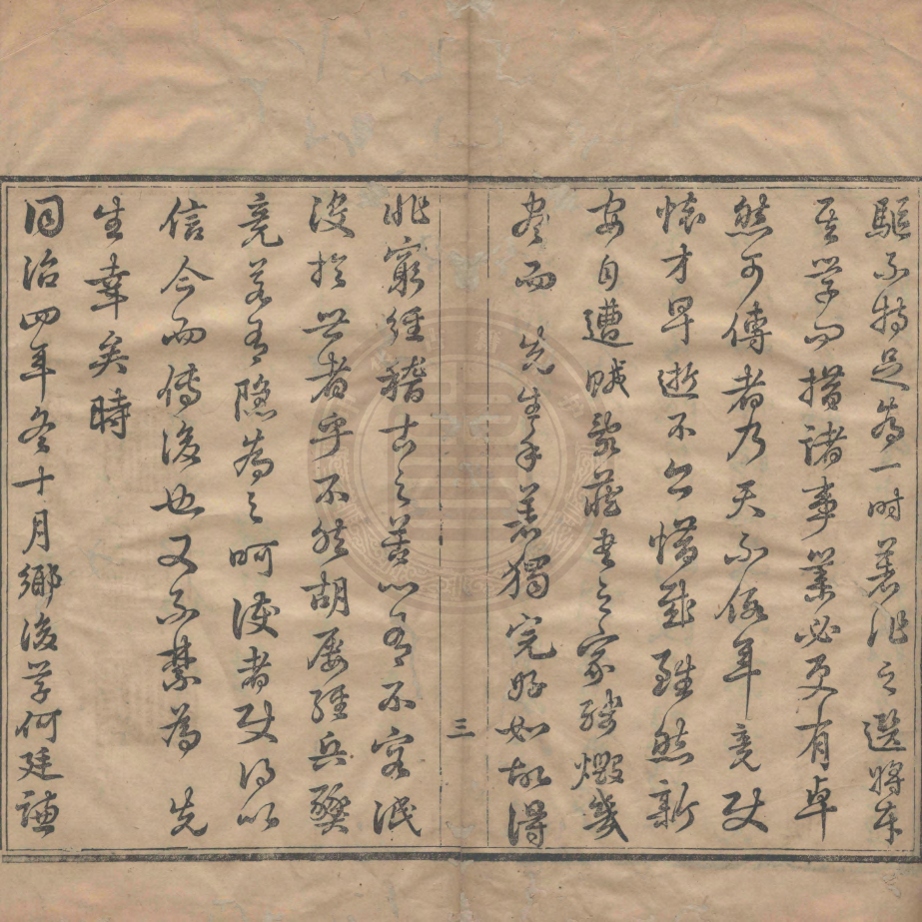 驅不特足為一時著作之選將本
其學問措諸事業必更有卓
然可傳者乃天不假年竟使
懷才早逝不亦惜哉雖然新
安自遭賊亂藏書之家殘燬幾
盡而　先生手著獨完好如故得
非窮經稽古之善心有不容泯
沒於世者乎不然胡屢經兵燹
竟若有隱為之呵護者使得以
信今而傳後也又不禁為　先
生幸矣時
同治四年冬十月鄉後學何廷謙
三